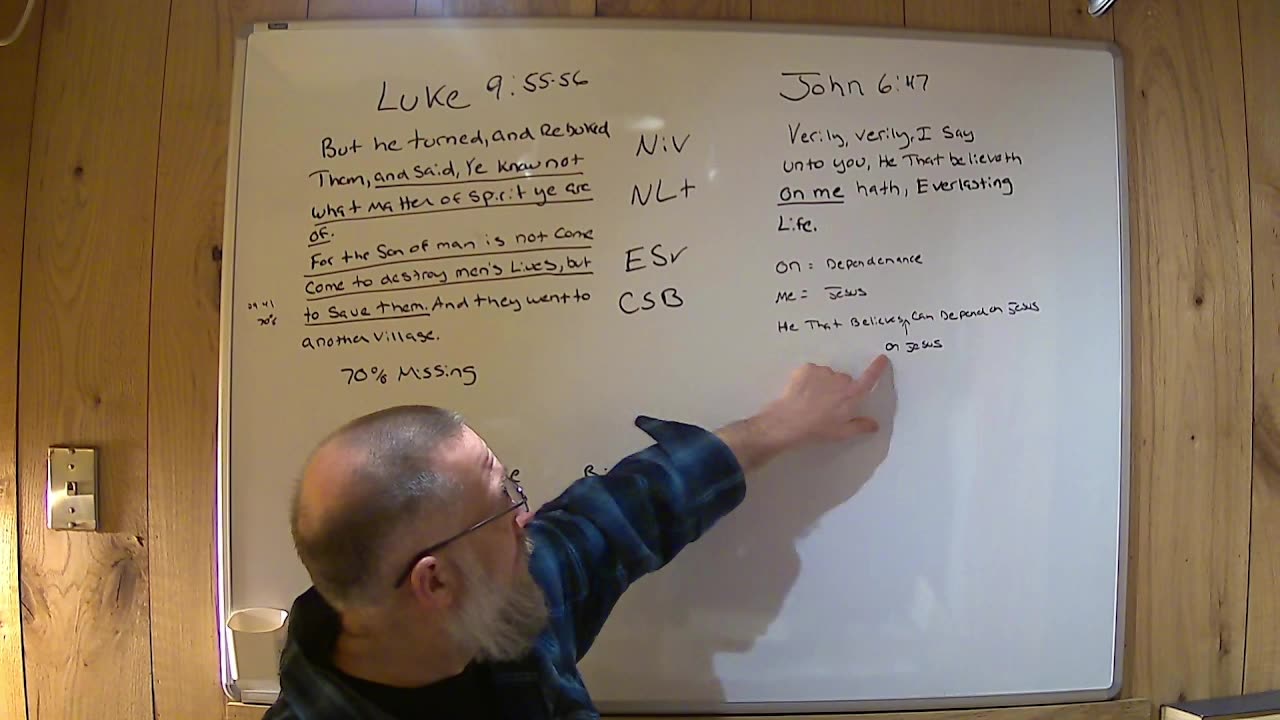 Luke 9:55-56
But he turned, and Rebuked
Them, and said, Ye know not
what matter of Spirit ye are
of.
For the Son of man is not Come
Come to destroy men's Lives, but
to save them. And they went to
another village.
70% Missing
29 41
70%
NiV
NLt
ESV
CSB
John 6:47
Verily, verily, I Say
unto you, He That believeth
on me hath, Everlasting
Life.
on = Dependenance
Me = Jesus
He That Believes, Can Depend on Jesus
on Jesus